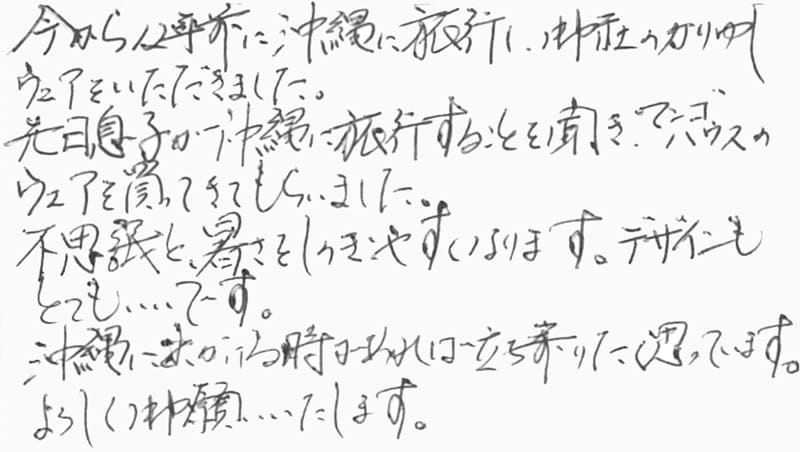 今から12年前に沖縄に旅行し、御社のかりゆし
ウェアをいただきました。
先日息子が沖縄に旅行することを聞き、マンゴハウスの
ウェアを買ってきてもらいました。
不思議と、暑さをしのぎやすくなります。デザインも
とても‥‥です。
沖縄に出かける時があれば立ち寄りたく思っています。
よろしく御願いいたします。